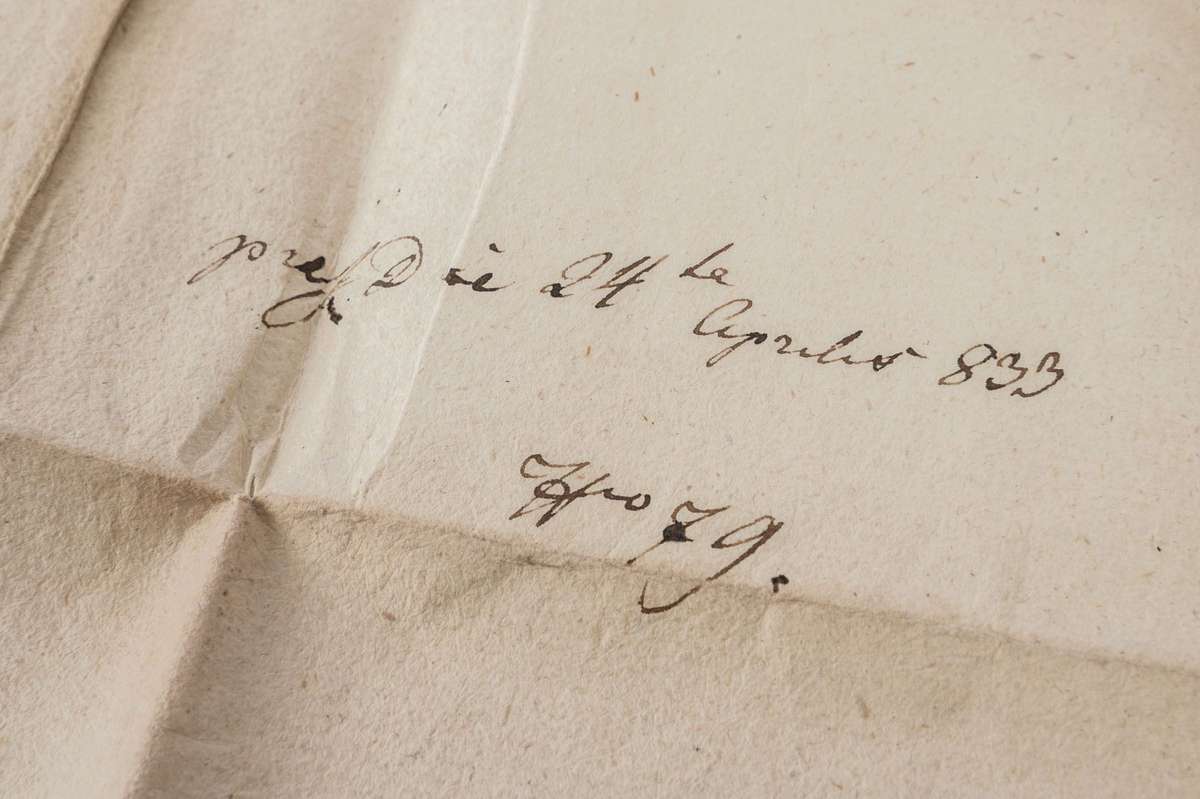 praes Die 24 ta Aprilis 833
Nro 79.